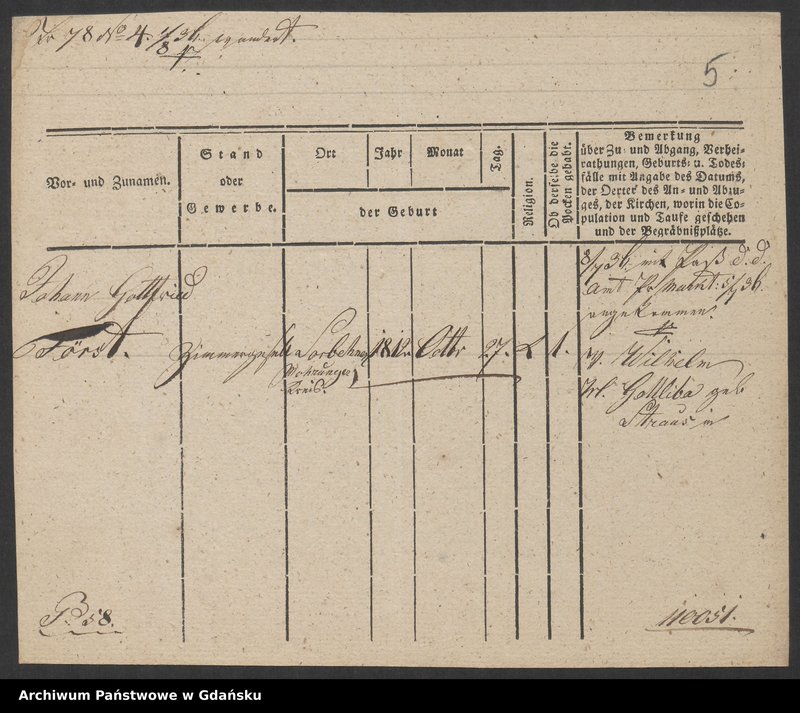 78 No 4.
5
Vor- und Zunamen.
Stand
oder
Gewerbe.
Ort
Jahr
Monat
Tag.
der Geburt
Religion.
Ob derselbe die
Pocken gehabt.
Bemerkung
über Zu- und Abgang, Verhei-
rathungen, Geburts- u. Todes-
fälle mit Angabe des Datums,
der Oerter des An- und Abzu-
ges, der Kirchen, worin die Co-
pulation und Taufe geschehen
und der Begräbnißplätze.
Johann Gottfried
Först.
Zimmergesell
Sorbehnen
Mohrunger
Kreis.
1812
Octbr
27.
L
1.
mit Paß d. d.
Amt Pr Markt
angekommen.
V. Wilhelm
Gottliba geb
Straus
P. 58.
11005.
Archiwum Państwowe w Gdańsku